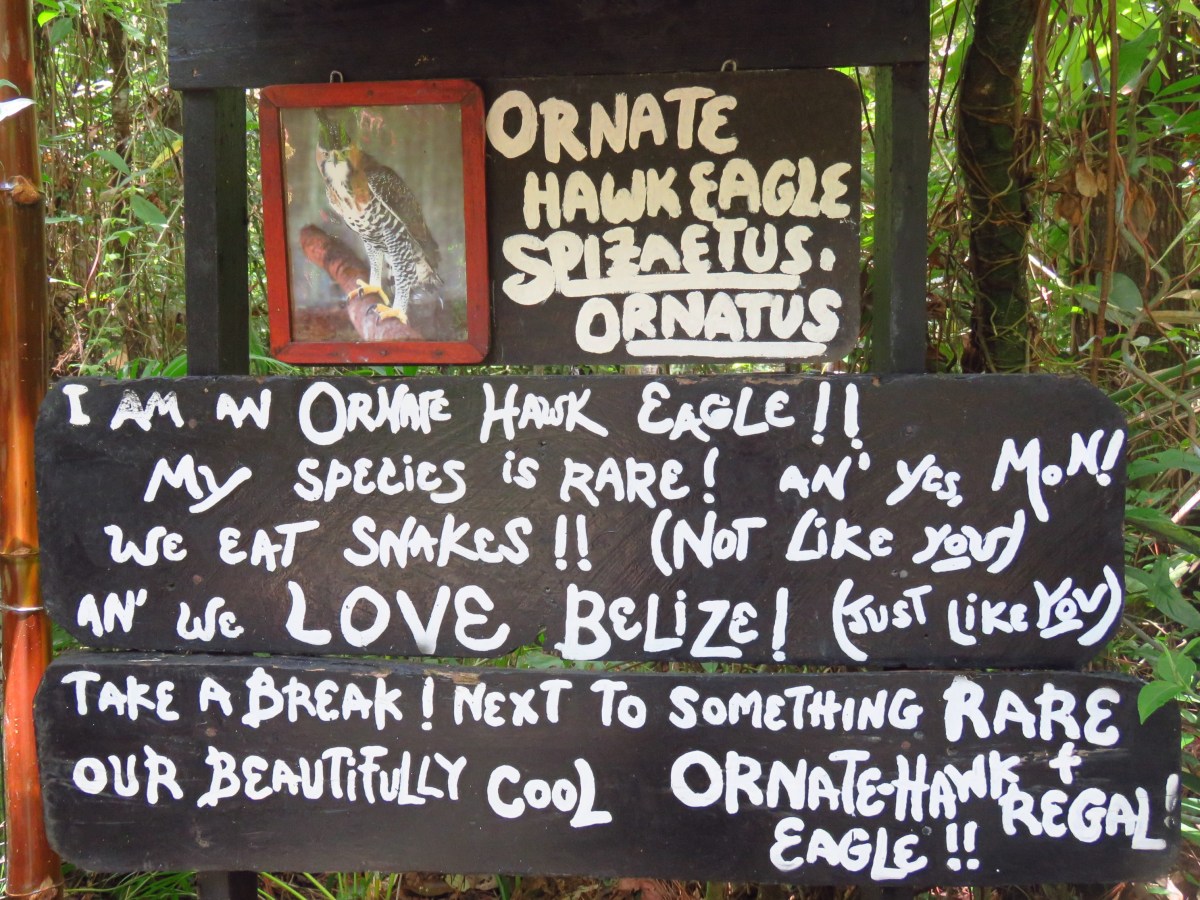 ORNATE
HAWK EAGLE
SPIZAETUS.
ORNATUS
I AM AN ORNATE HAWK EAGLE!!
MY SPECIES iS RARE! AN' YES, MON!
WE EAT SNAKES!! (NOT LIKE YOU)
AN' WE LOVE BELIZE! (JUST LIKE YOU)
TAKE A BREAK! NEXT TO SOMETHING RARE
+ REGAL!
OUR BEAUTIFULLY COOL ORNATE-HAWK
EAGLE!!